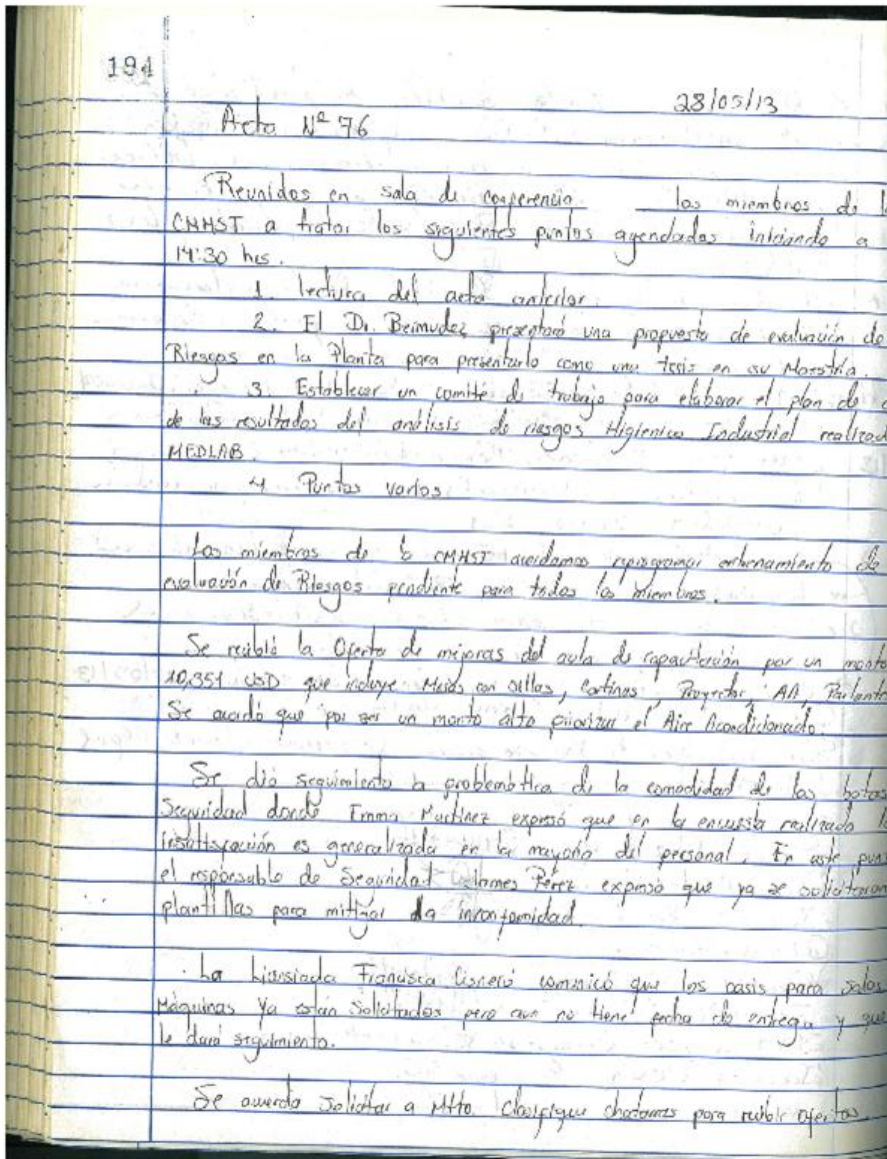 194
28/05/13
Acta Nº 76
Reunidos en sala de conferencia los miembros de l
CMHST a tratar los siguientes puntos agendados iniciando a
14:30 hrs.
1. lectura del acta anterior.
2. El Dr. Bermudez presentará una propuesta de evaluación de
Riesgos en la Planta para presentarlo como una tesis en su Maestría.
3. Establecer un comité de trabajo para elaborar el plan de
de los resultados del análisis de riesgos Higienico Industrial realizad
MEDLAB
4 Puntos varios
Los miembros de la CMHST acordamos reprogramar entrenamiento de
evaluación de Riesgos pendiente para todos los miembros.
Se recibió la Oferta de mejoras del aula de capacitación por un monto
10,351 USD que incluye Mesas con sillas, Cortinas, Proyector, AA, Parlante
Se acordó que por ser un monto alto priorizar el Aire Acondicionado.
Se dió seguimiento a problemática de la comodidad de las botas
Seguridad donde Emma Martínez expresó que en la encuesta realizada l
insatisfacción es generalizada en la mayoría del personal. En este pun
el responsable de Seguridad James Pérez expreso que ya se solicitaron
plantillas para mitigar la inconformidad.
La Licensiada Francisca Cisnero comunicó que los oasis para salas
Máquinas ya están Solicitados pero aun no tiene fecha de entrega y que
le dará seguimiento.
Se acuerda Solicitar a Mtto. chatarras para recibir ofertas.